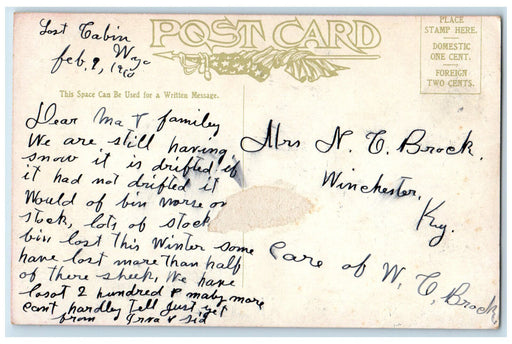 Lost Cabin
Wyo
Feb. 9, 1910
POST CARD
PLACE
STAMP HERE.
DOMESTIC
ONE CENT.
FOREIGN
TWO CENTS.
This Space Can Be Used for a Written Message.
Dear Ma & familey
We are still having
snow it is drifted if
it had not drifted it
Would of bin worse on
stock, lots of stock
bin lost this Winter some
have lost more than half
of there sheek, We have
losot 2 hundred & maby more
cant hardley tell just yet
from Irva & Sid
Mrs N. C. Brock.
Winchester,
Ky.
Care of W. C. Brock.